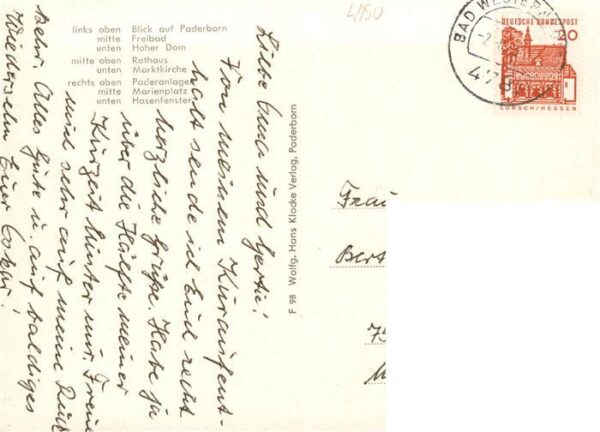 4750
links oben Blick auf Paderborn
mitte Freibad
unten Hoher Dom
mitte oben Rathaus
unten Marktkirche
rechts oben Paderanlagen
mitte Marienplatz
unten Hasenfenster
Liebe und Gertie!
Von meinem Kuraufent-
halt sende ich Euch recht
herzliche Grüße. Habe ja
über die Hälfte meiner
Kurzeit hinter mir. Freue
mich sehr auf meine Rück-
kehr. Alles Gute u. auf baldiges
Wiedersehn Euer Oskar!
F 98 Wolfg. Hans Klocke Verlag, Paderborn
BAD WESTERN
DEUTSCHE BUNDESPOST
20
LORSCH/HESSEN
Frau
Bert